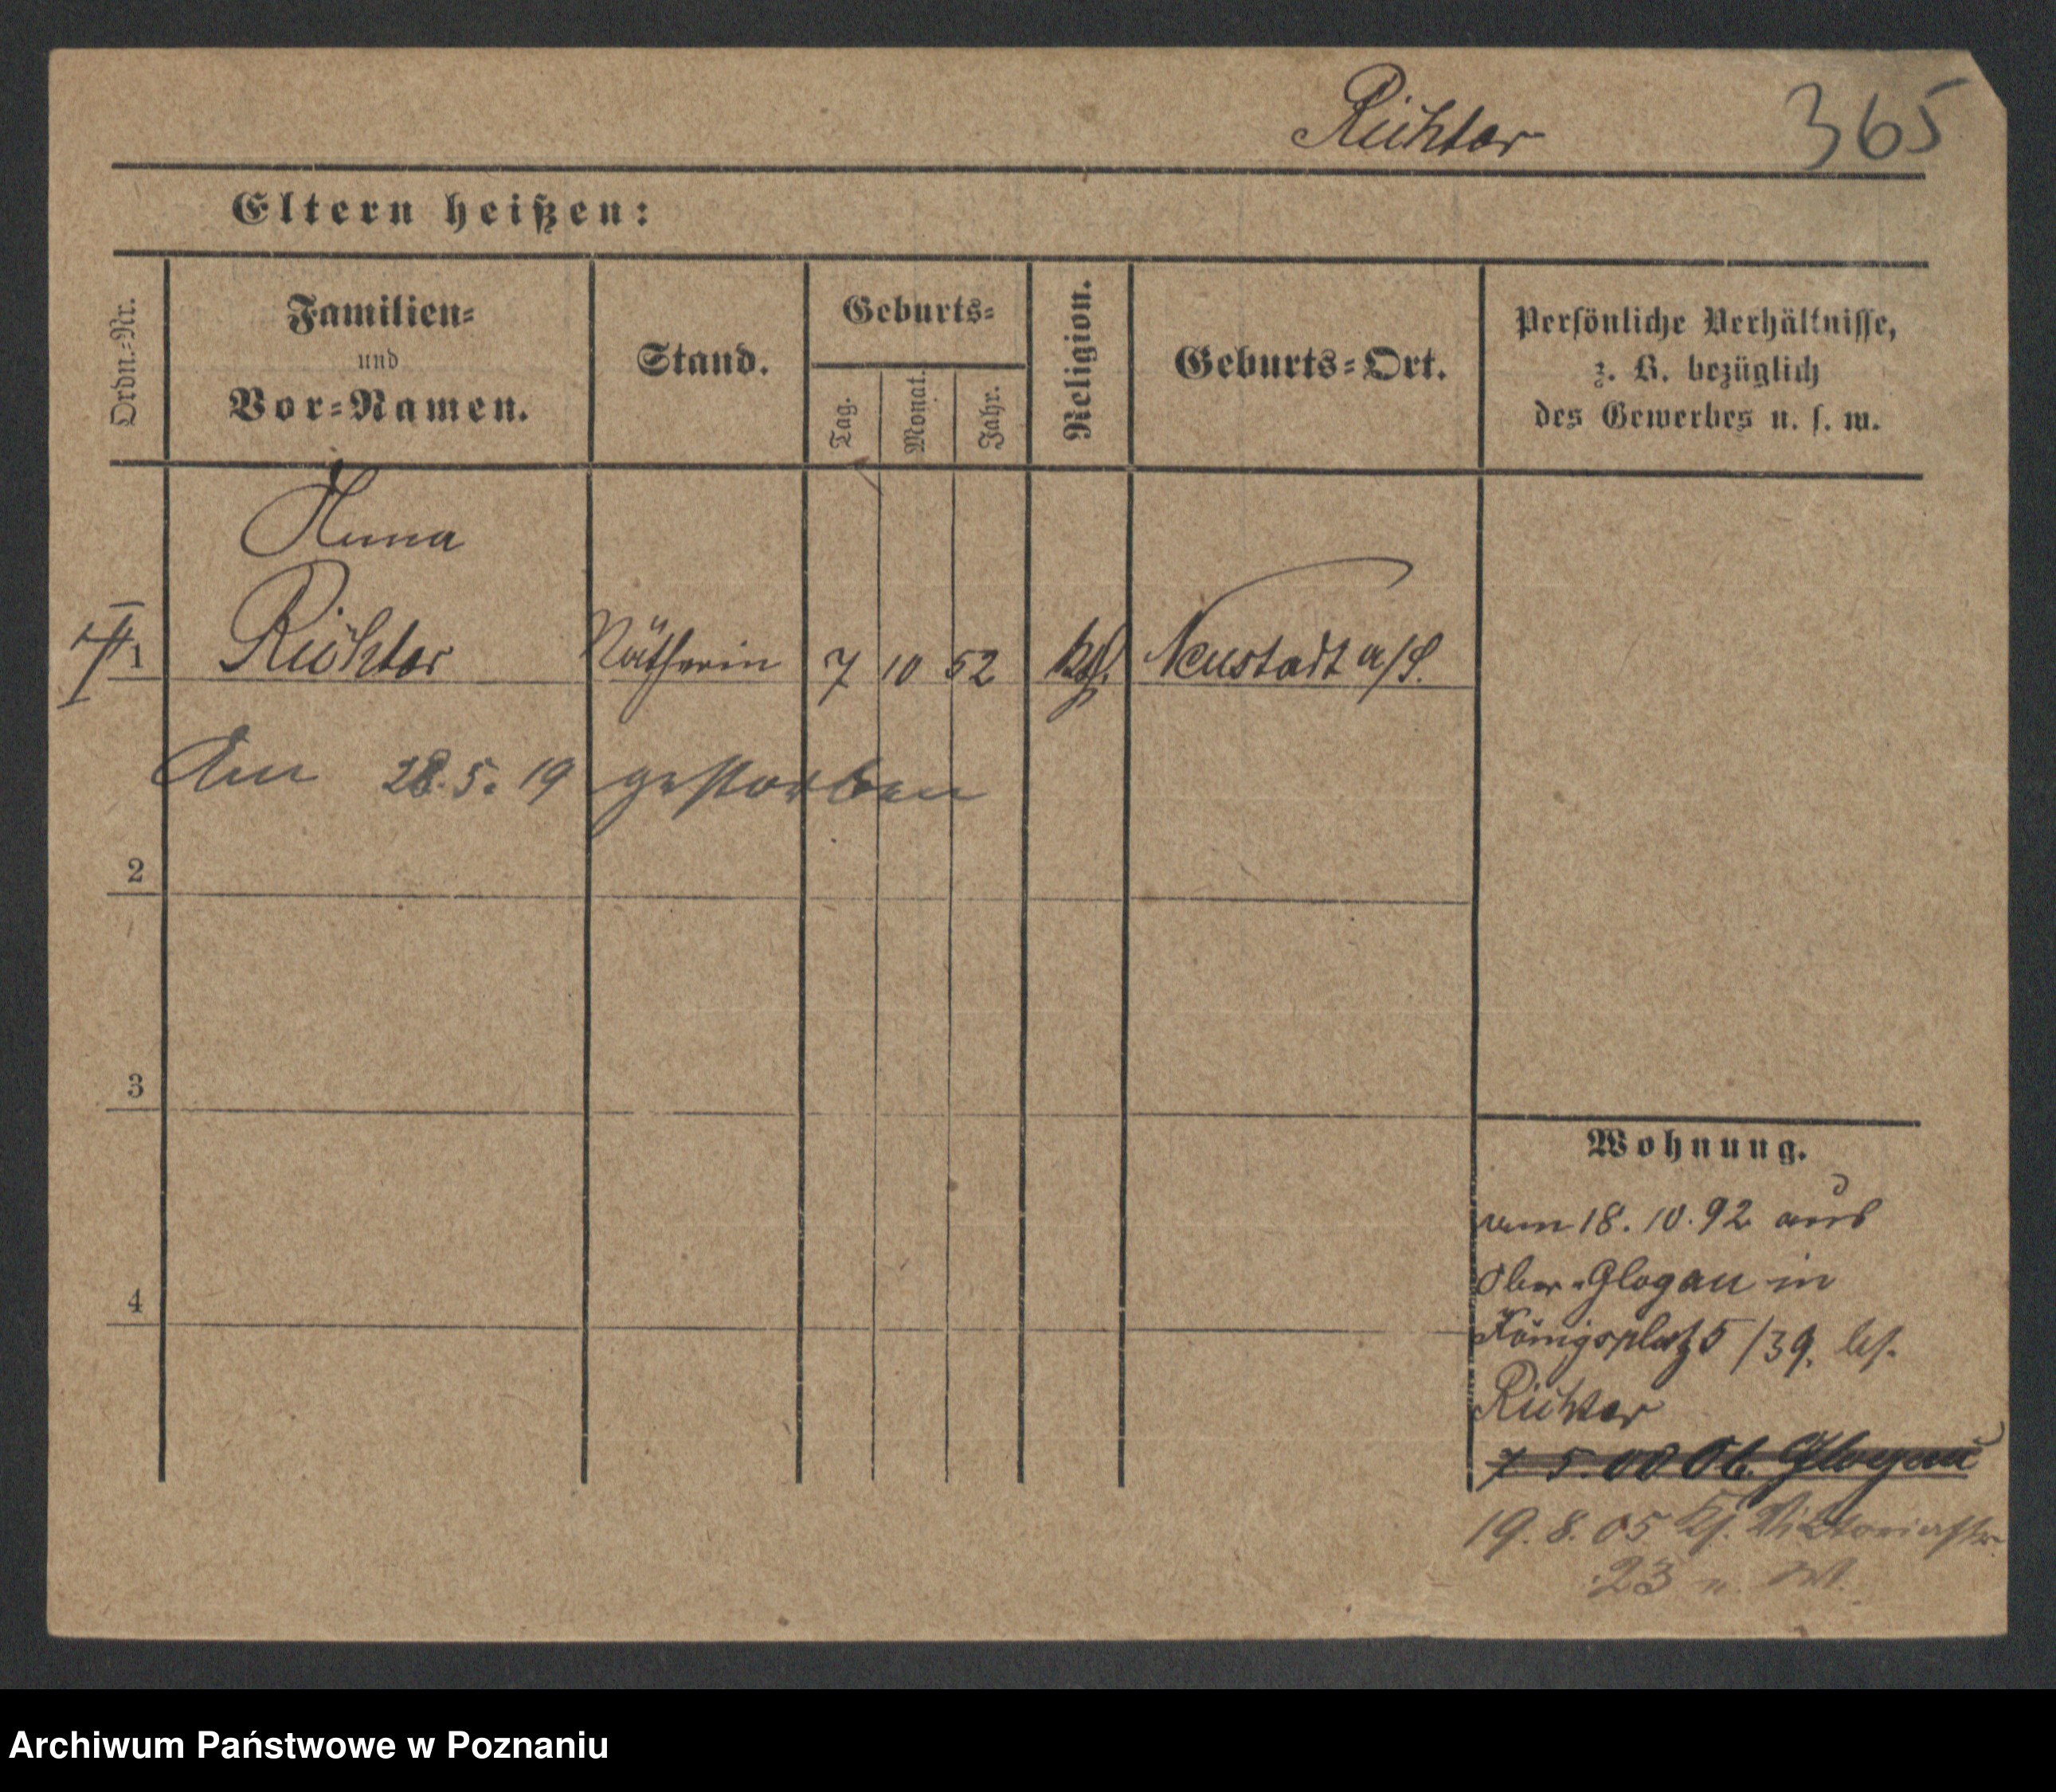 Richter 365
Eltern heißen:
Ordn.-Nr.
Familien-
und
Vor-Namen.
Stand.
Geburts-
Tag.
Monat.
Jahr.
Religion.
Geburts-Ort.
Persönliche Verhältnisse,
z. B. bezüglich
des Gewerbes u. s. w.
Anna
1 Richter Nätherin 7 10 52 kth. Neustadt o/S.
Am 28.5.19 gestorben
2
3
4
Wohnung.
am 18.10.92 aus
Ober-Glogau in
Königsplatz 5/39. bf.
Richter
7 5.00 Ob. Glogau
19.8.05 Viktoriastr.
23
Archiwum Państwowe w Poznaniu